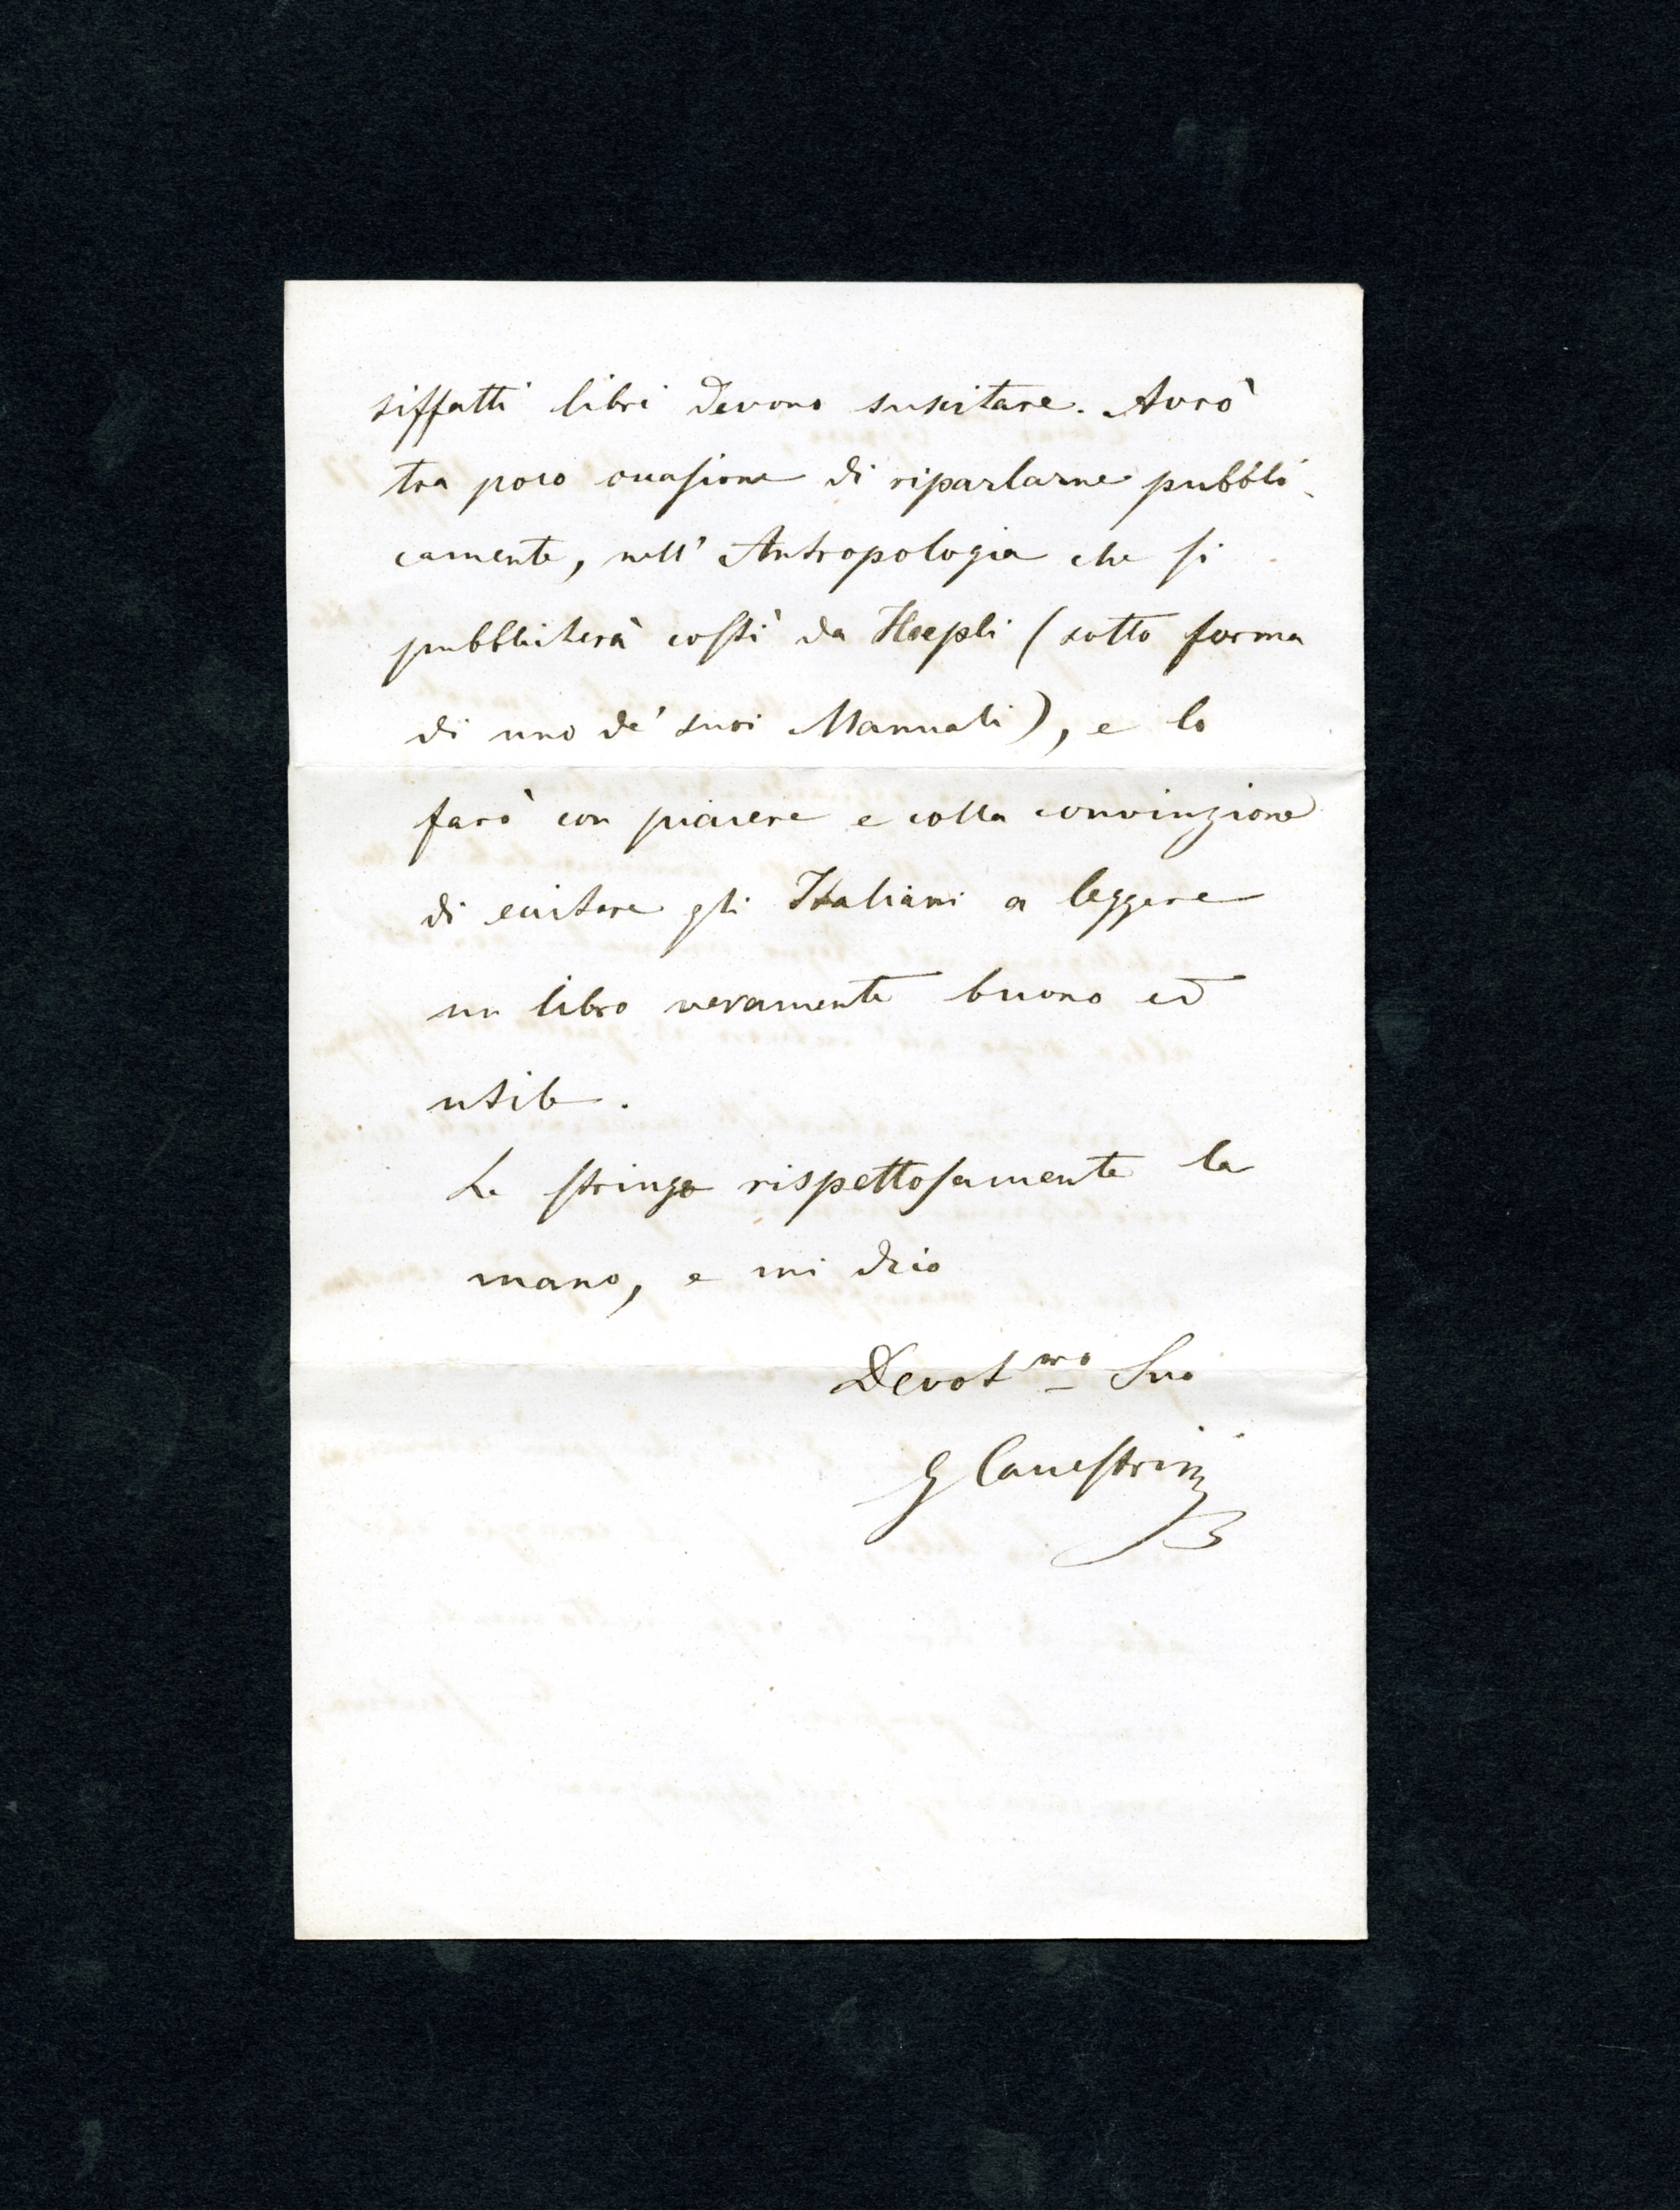 siffatti libri devono suscitare. Avrò
tra poco occasione di riparlarne pubbli-
camente, nell' Antropologia che si
pubblicherà costì da Hoepli (sotto forma
di uno de' suoi Manuali), e lo
farò con piacere e colla convinzione
di eccitare gli Italiani a leggere
un libro veramente buono ed
utile.
Le stringo rispettosamente la
mano, e mi dico
Devotmo Suo
G Canestrini